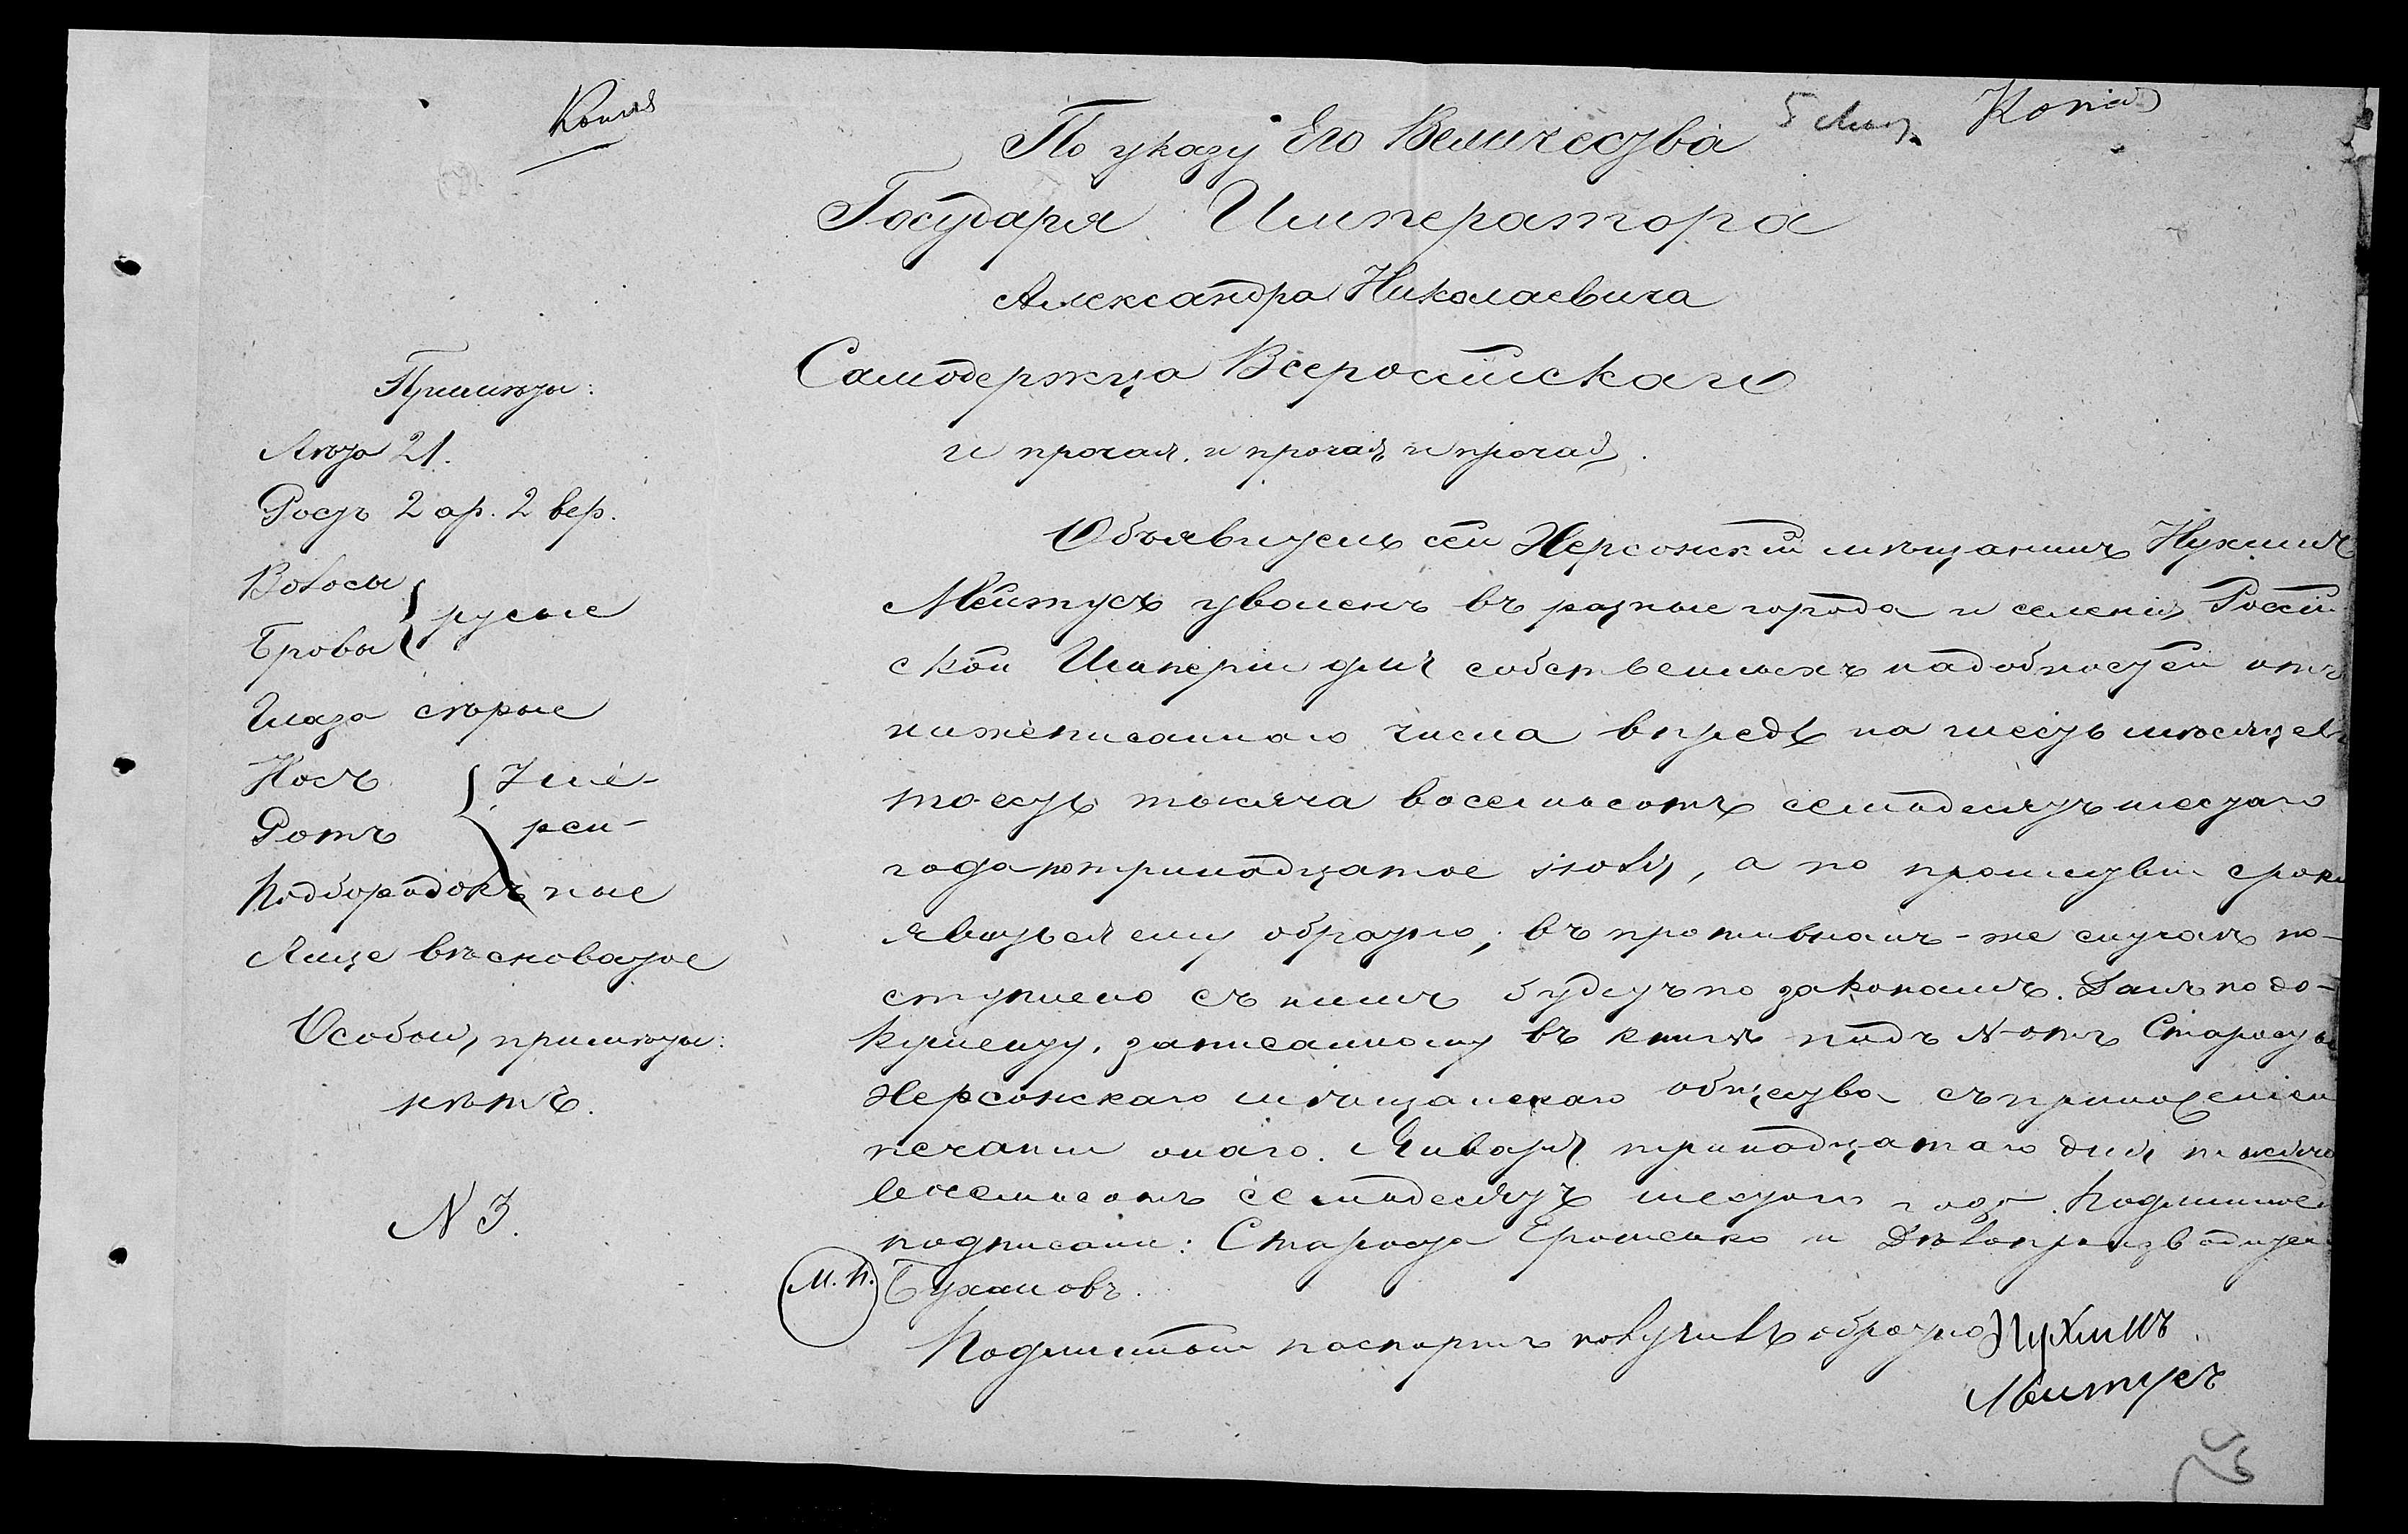 Копія
Копія
По указу Его Величества
Государя Императора
Александра Николаевича
Самодержца Всероссійскаго
и прочая, и прочая, и прочая.
Примѣты:
Лѣта 21.
Ростъ 2 ар. 2 вер.
Волосы
Брови
русые
Глаза сѣрые
Носъ
Ротъ
Подбородокъ
Уме-
рен-
ные
Лице весноватое
Особыя примѣты:
нѣтъ.
N 3.
Объявитель сей Херсонскій мѣщанинъ Нухимъ
Мейтусъ уволенъ въ разные города и селенія Россій
ской Имперіи для собственныхъ надобностей отъ
нижеписаннаго числа впредь на шесть мѣсяцевъ
то-есть тысяча восемьсотъ семьдесятъ шестаго
года по тринадцатое іюля, а по прошествіи срока
явиться ему обратно; въ противномъ-же случаѣ по-
ступлено съ нимъ будетъ по законамъ. Данъ по до-
кументу, записанному въ книгѣ подъ N отъ Старосты
Херсонскаго мѣщанскаго общества съ приложеніем
печати онаго. Января тринадцатаго дня тысяча
восемьсотъ семьдесятъ шестаго года. Подлинное
подписали: Староста Ерошенко и Дѣлопроизводител
М. П.
Бухановъ.
Подлинный паспортъ получилъ обратно Нухимъ
Мейтусъ